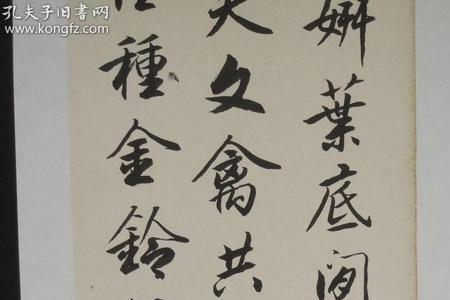 孔夫子旧书网
www.kongfz.com
姍葉底
文禽共
種金鈴